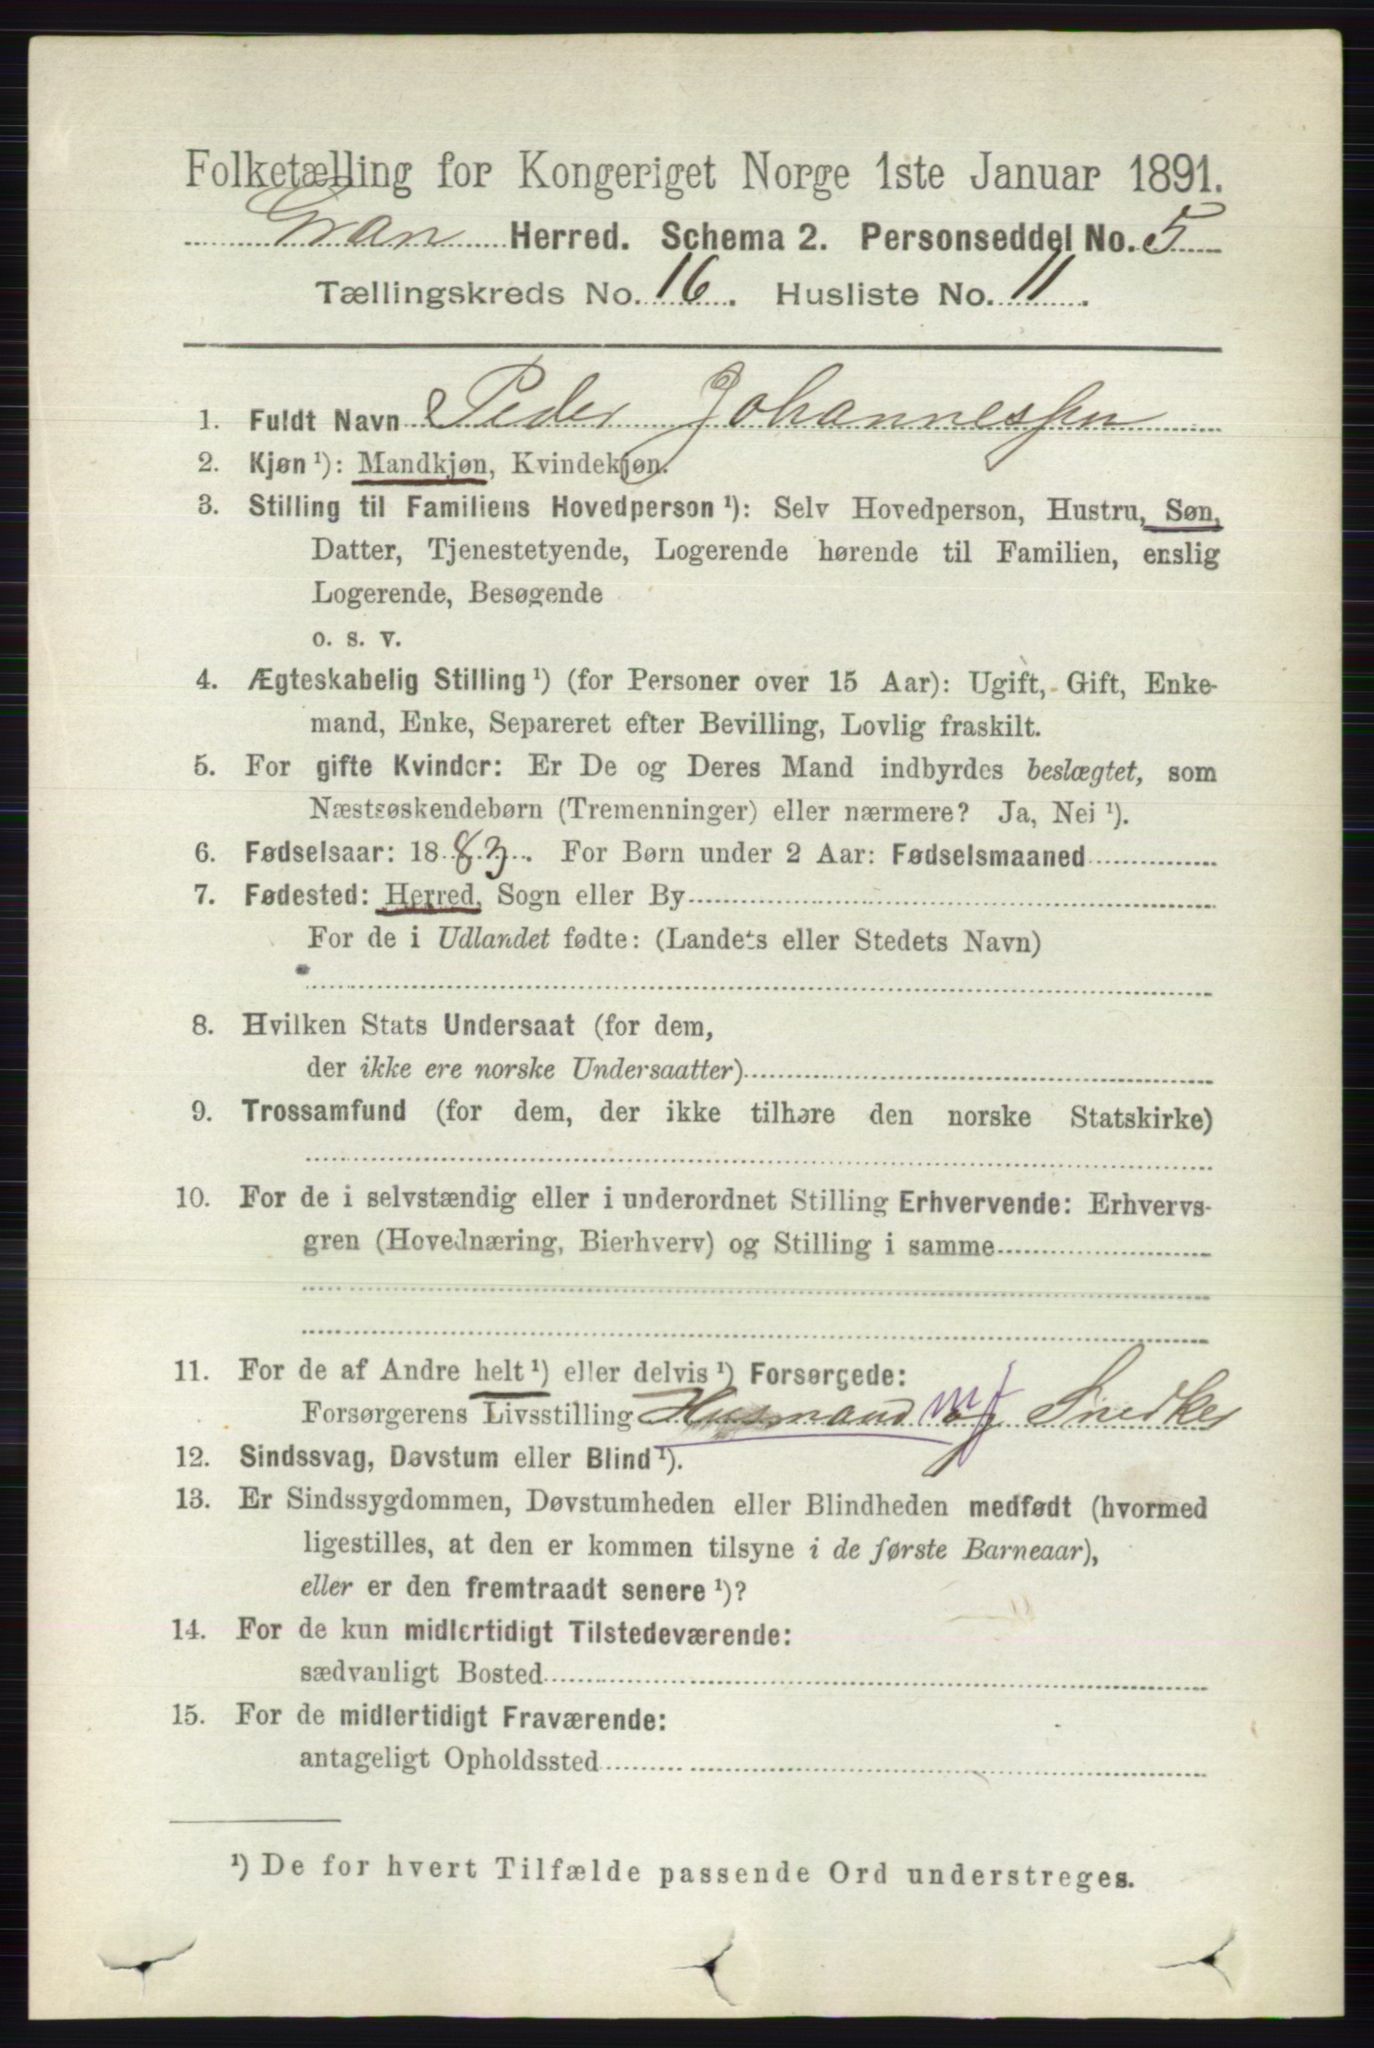 Folketælling for Kongeriget Norge 1ste Januar 1891.
Gran Herred. Schema 2. Personseddel No. 5
Tællingskreds No. 16. Husliste No. 11.
1. Fuldt Navn Peder Johannessen
2. Kjøn ¹): Mandkjøn, Kvindekjøn.
3. Stilling til Familiens Hovedperson ¹): Selv Hovedperson, Hustru, Søn,
Datter, Tjenestetyende, Logerende hørende til Familien, enslig
Logerende, Besøgende
o. s. v.
4. Ægteskabelig Stilling ¹) (for Personer over 15 Aar): Ugift, Gift, Enke-
mand, Enke, Separeret efter Bevilling, Lovlig fraskilt.
5. For gifte Kvinder: Er De og Deres Mand indbyrdes beslægtet, som
Næstsøskendebørn (Tremenninger) eller nærmere? Ja, Nei ¹).
6. Fødselsaar: 1883. For Børn under 2 Aar: Fødselsmaaned
7. Fødested: Herred, Sogn eller By
For de i Udlandet fødte: (Landets eller Stedets Navn)
8. Hvilken Stats Undersaat (for dem,
der ikke ere norske Undersaatter)
9. Trossamfund (for dem, der ikke tilhøre den norske Statskirke)
10. For de i selvstændig eller i underordnet Stilling Erhvervende: Erhvervs-
gren (Hovednæring, Bierhverv) og Stilling i samme
11. For de af Andre helt ¹) eller delvis ¹) Forsørgede:
Forsørgerens Livsstilling Husmand mj og Snedker
12. Sindssvag, Døvstum eller Blind ¹).
13. Er Sindssygdommen, Døvstumheden eller Blindheden medfødt (hvormed
ligestilles, at den er kommen tilsyne i de første Barneaar),
eller er den fremtraadt senere ¹)?
14. For de kun midlertidigt Tilstedeværende:
sædvanligt Bosted
15. For de midlertidigt Fraværende:
antageligt Opholdssted
¹) De for hvert Tilfælde passende Ord understreges.